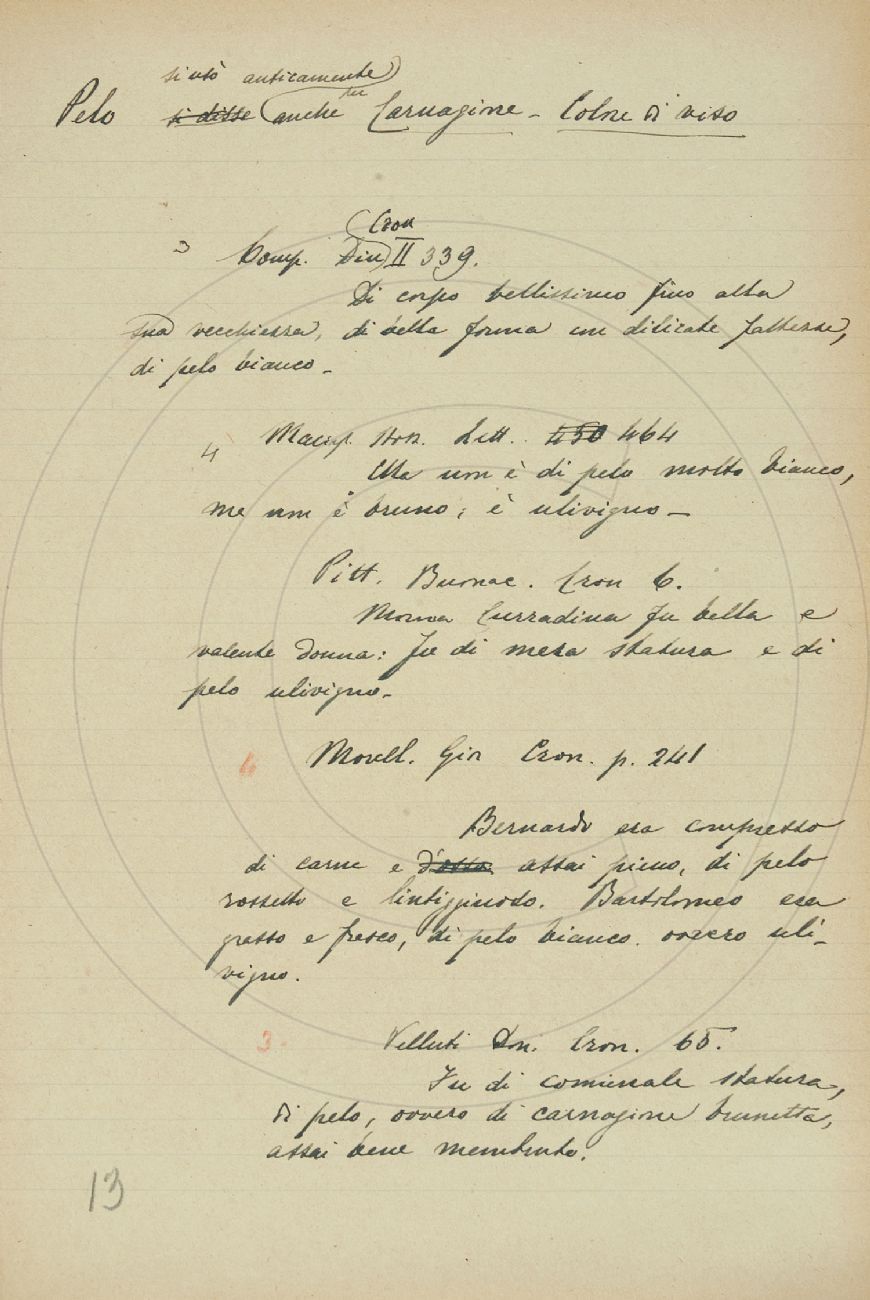 si usò anticamente
Pelo si disse anche per Carnagione - Colore di viso
Cron
3 Comp. Din II 339.
Di corpo bellissimo fino alla
sua vecchiezza, di bella forma con dilicate fattezze,
di pelo bianco -
4 Macp. Stor. Lett. 450 464
Ella non è di pelo molto bianco,
me non è bruno; è ulivigno -
Pitt. Buonac. Cron 6.
Monna Curradina fu bella e
valente donna: fu di meza statura e di
pelo ulivigno -
4 Morell. Gio Cron. p. 241
Bernardo era compresso
di carne e d'ossa assai pieno, di pelo
rossetto e lintigginoso. Bartolomeo era
grosso e fresco, di pelo bianco ovvero uli-
vigno.
3 Velluti Don. Cron. 65.
Fu di comunale statura,
di pelo, ovvero di carnagione brunetta,
assai bene membruto.
13